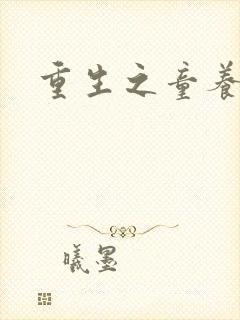 重生之童养
曦墨